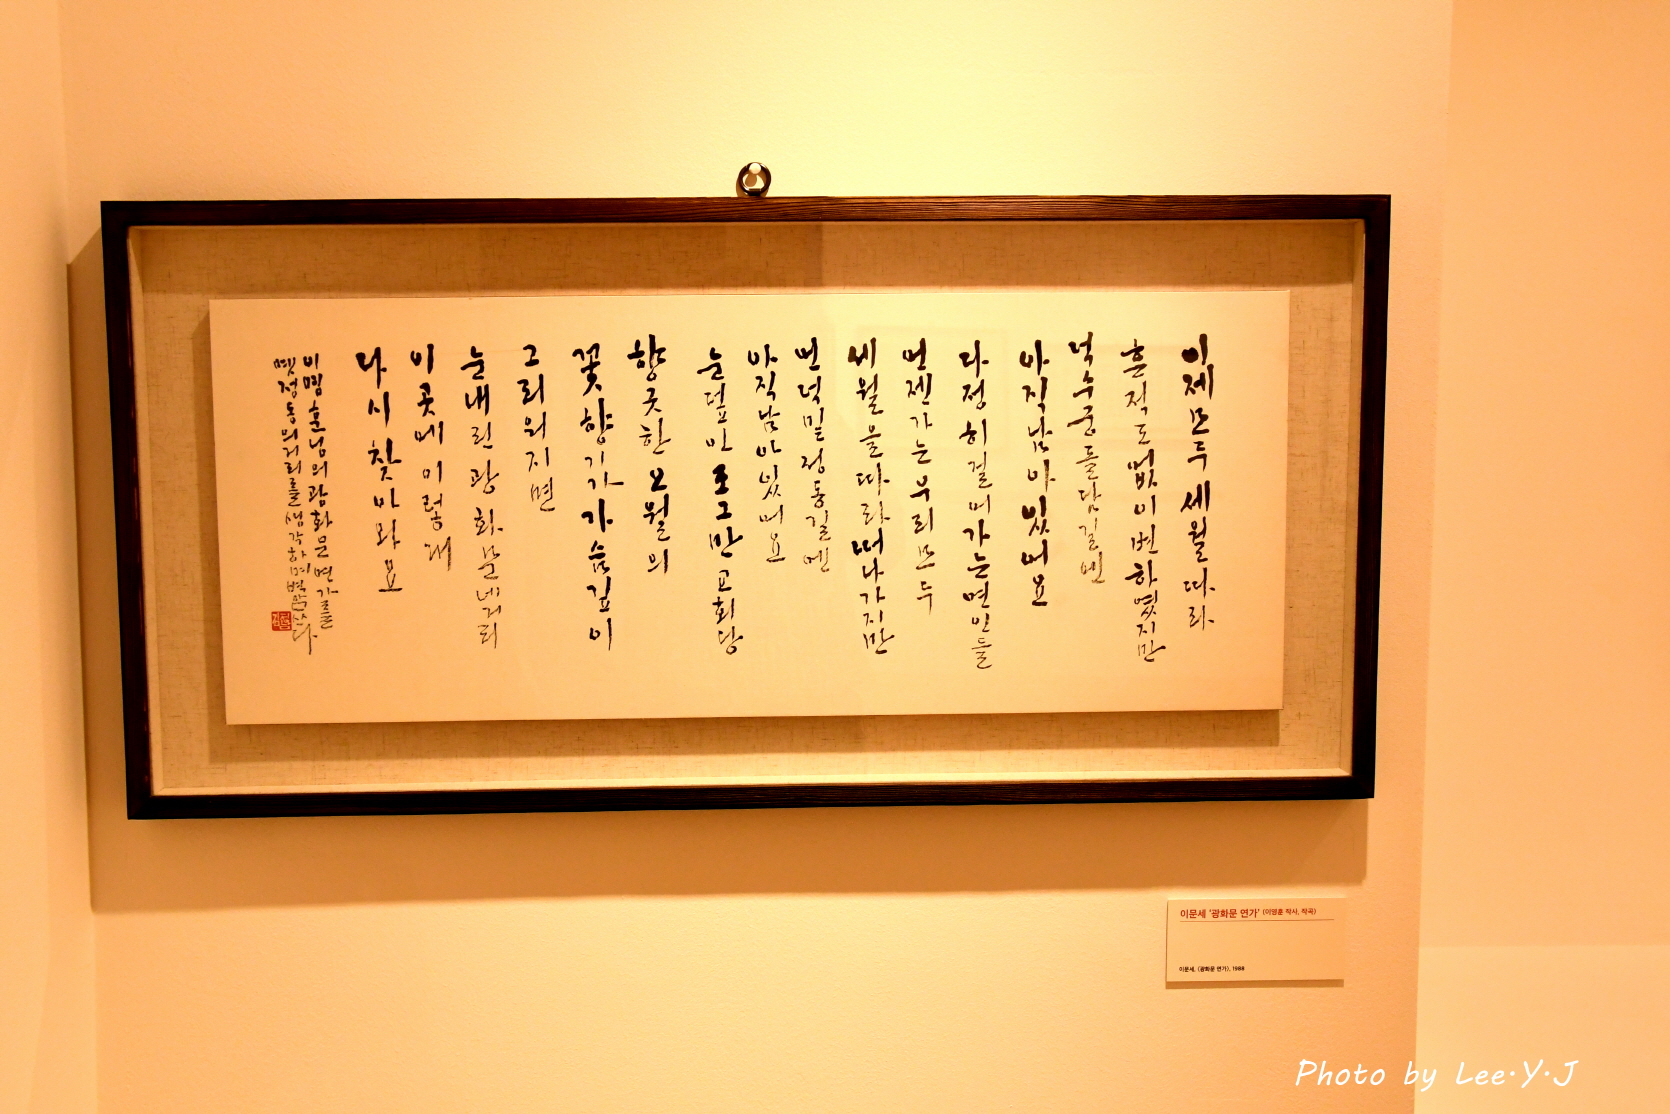 이제 모두 세월 따라
흔적도 없이 변하였지만
덕수궁 돌담길엔
아직 남아 있어요
다정히 걸어가는 연인들
언젠가는 우리 모두
세월을 따라 떠나가지만
언덕 밑 정동길엔
아직 남아 있어요
눈 덮인 조그만 교회당
향긋한 오월의
꽃향기가 가슴 깊이
그리워지면
눈 내린 광화문 네거리
이곳에 이렇게
다시 찾아와요
이영훈님의 광화문 연가를
정동의 거리를 생각하며
이문세 '광화문 연가' (이영훈 작사, 작곡)
이문세, 〈광화문 연가〉, 1988
Photo by Lee·Y·J